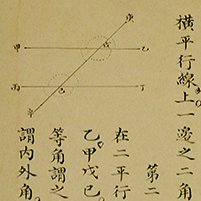 橫平行線上一邊之二角
第二
在二平行
乙甲戊己
等角謂之
謂内外角
庚
甲
乙
戊
丙
丁
己
辛